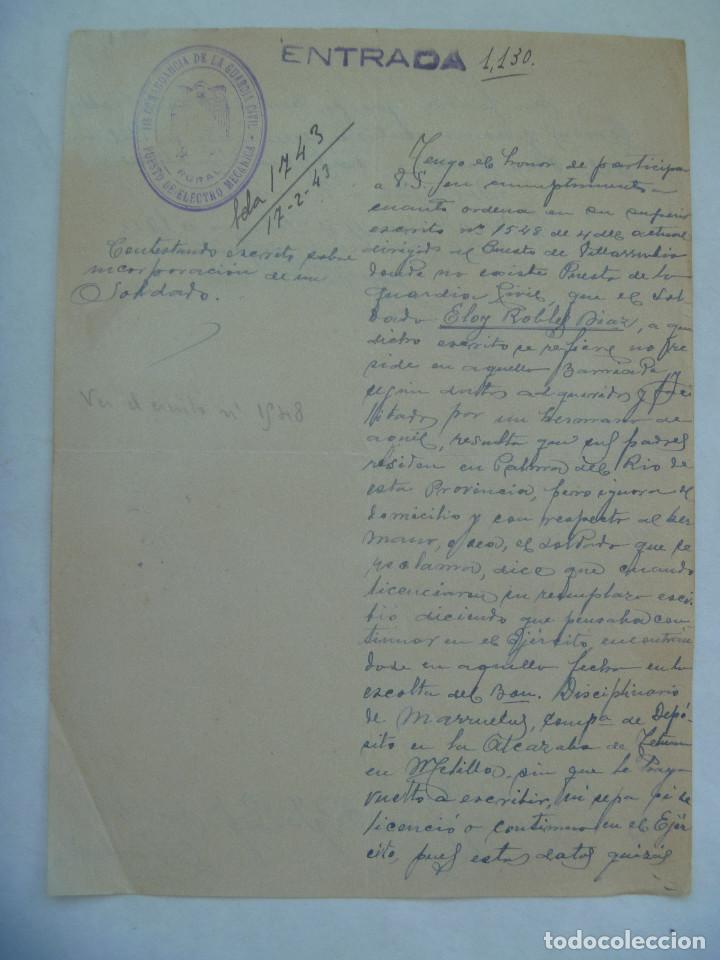 ENTRADA 1,130.
COMANDANCIA DE LA GUARDIA CIVIL
RURAL
PUESTO DE ELECTRO MECANICA
1743
17-2-43
Contestando escrito sobre
incorporación de un
Soldado.
Ver el escrito nº 1548
Tengo el honor de participar
a V.S. en cumplimiento a
cuanto ordena en su superior
escrito nº 1548 de 4 del actual
dirigido al Puesto de Villarrubia
donde no existe Puesto de la
Guardia Civil, que el Sol-
dado Eloy Robles Diaz, a que
dicho escrito se refiere no re
side en aquella Barriada y
según datos adqueridos y faci
litados por un hermano de
aquel, resulta que sus padres
residen en Palma del Rio de
esta Provincia, pero ignora el
domicilio y con respecto al her
mano, o sea, el soldado que se
reclama, dice que cuando
licenciaron su remplazo escri
bió diciendo que pensaba con
tinuar en el Ejército encontrán
dose en aquella fecha en la
escolta del Bon. Disciplinario
de Marruecos, Compª de Depó
sito en la Alcazaba de
en Melilla, sin que le haya
vuelto a escribir, ni sepa si se
licenció o continua en el Ejér
cito, pues estos datos quizás
todocoleccion.net